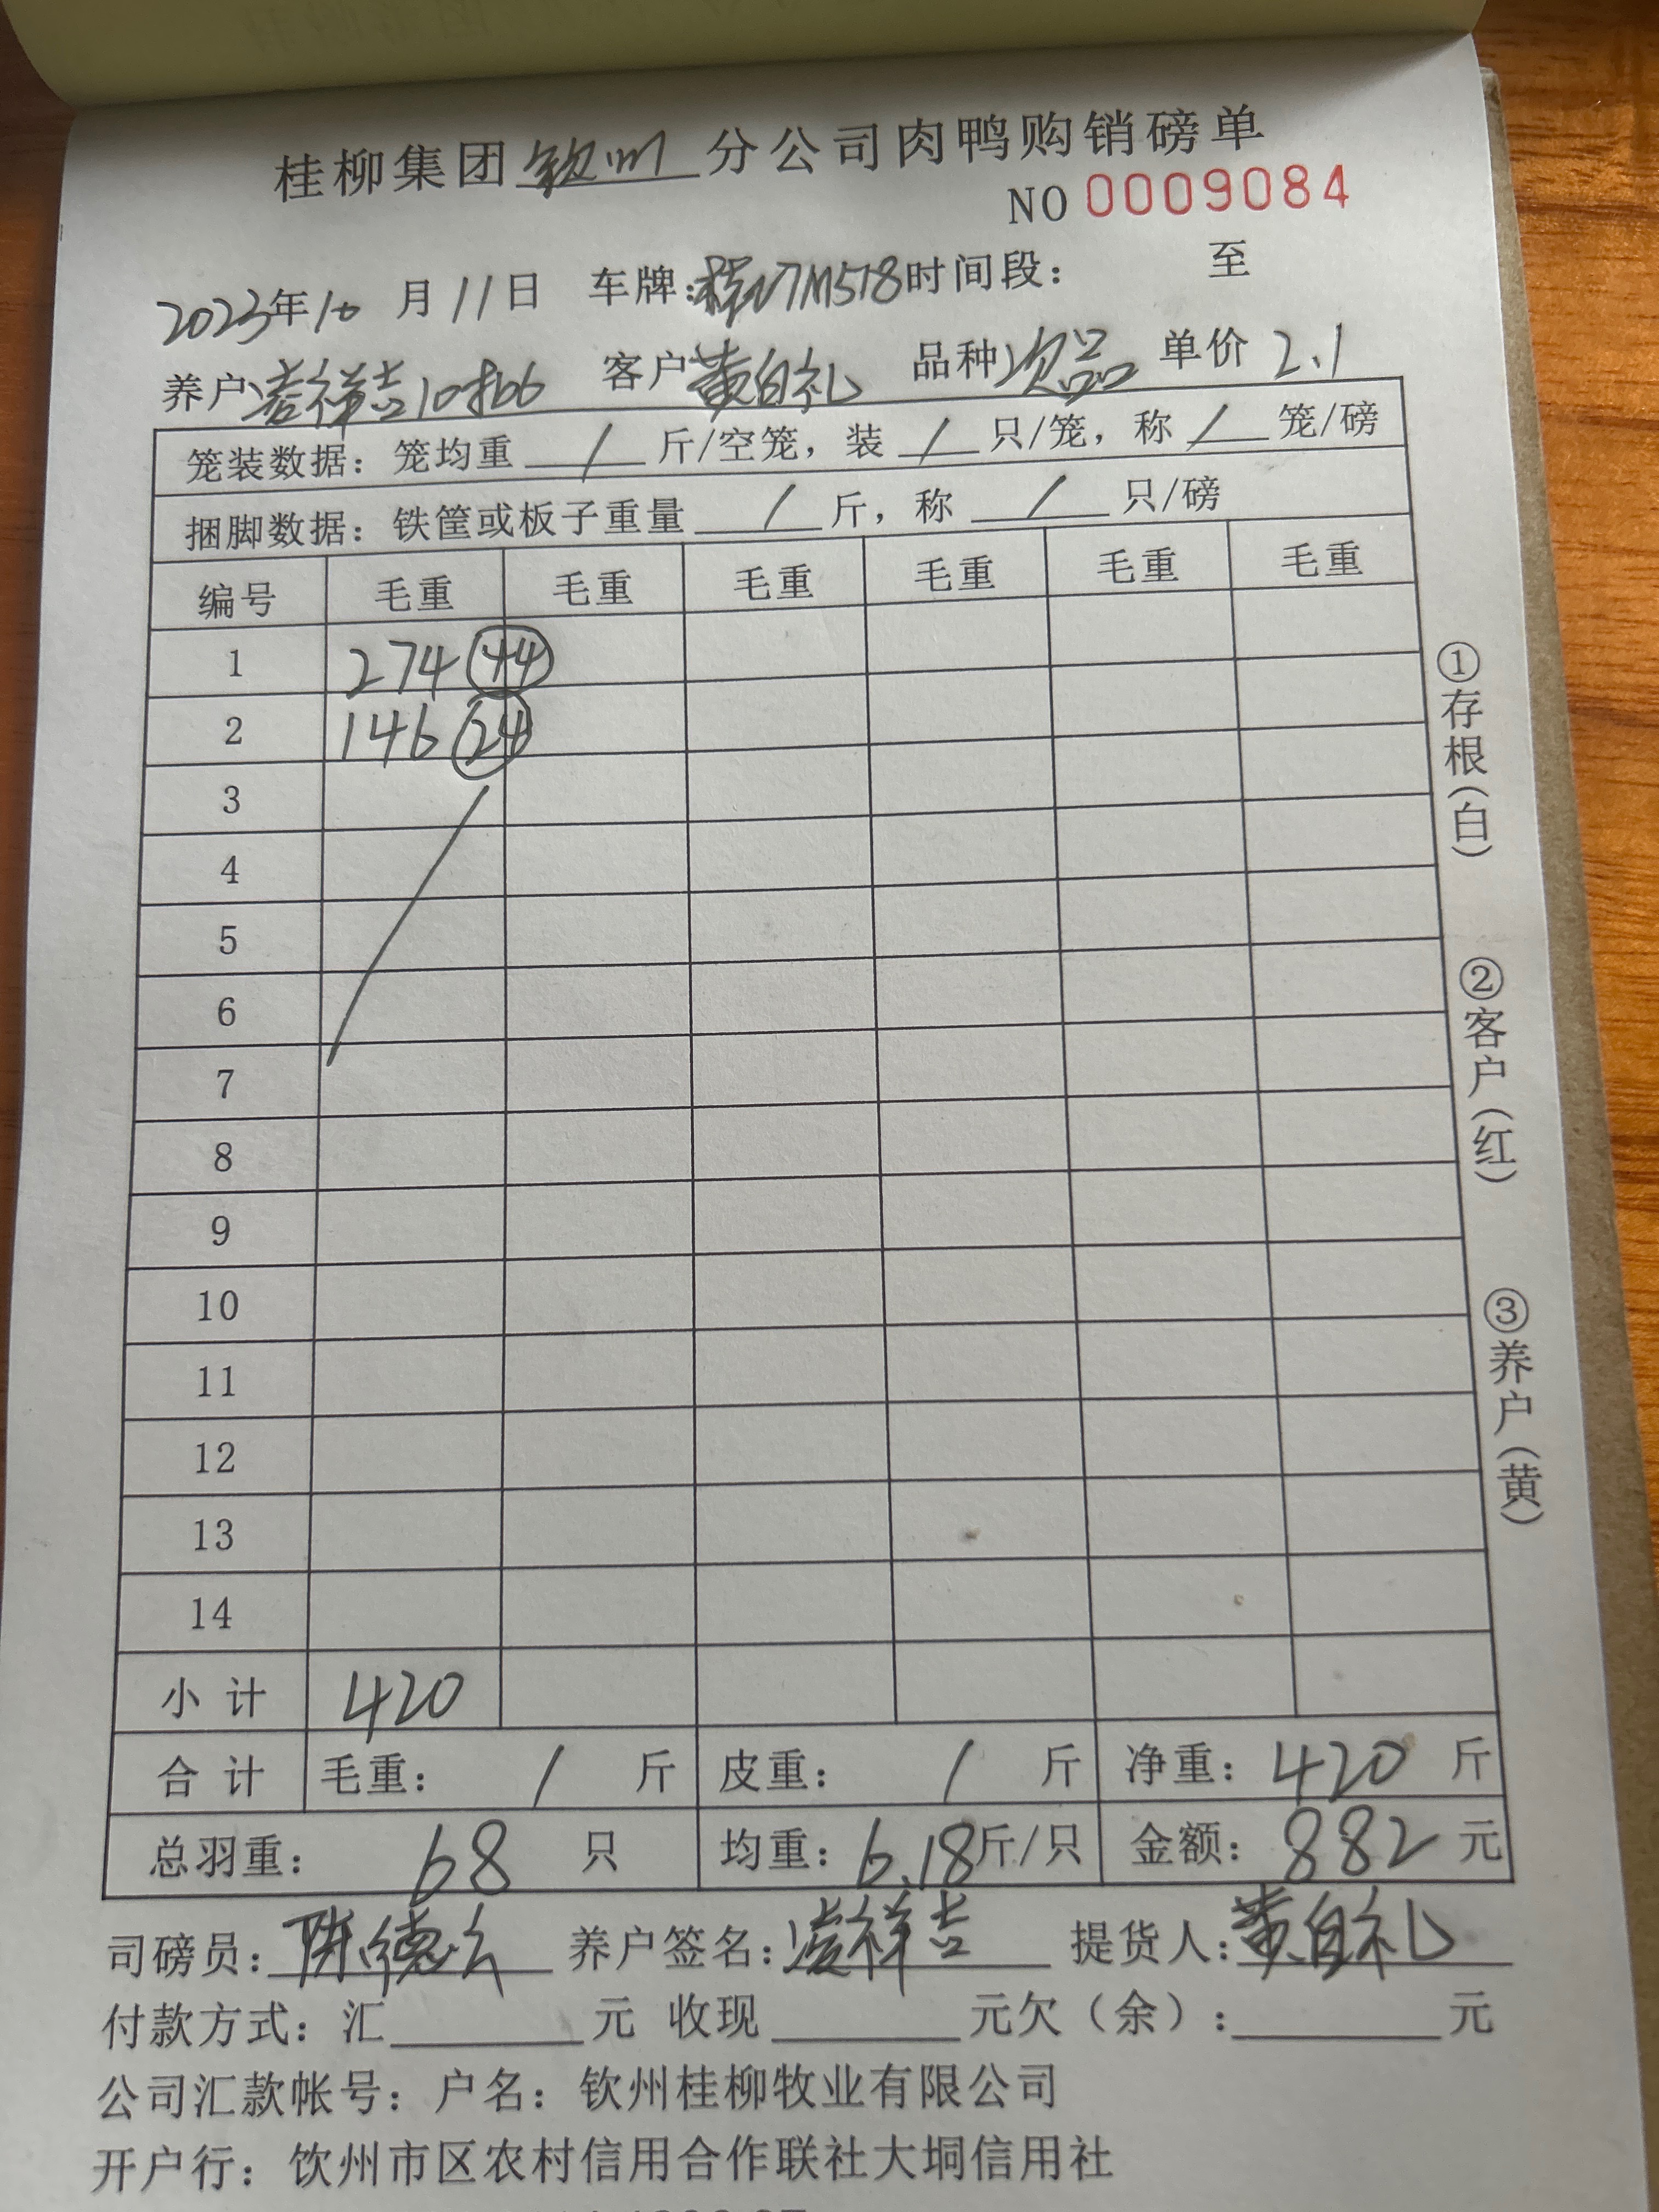 桂柳集团钦州分公司肉鸭购销磅单
NO 0009084
2023年10月11日 车牌:桂N7M578时间段: 至
养户 凌祥吉10批6 客户 黄自礼 品种 次品 单价 2.1
笼装数据: 笼均重 / 斤/空笼, 装 / 只/笼, 称 / 笼/磅
捆脚数据: 铁筐或板子重量 / 斤, 称 / 只/磅
编号 毛重 毛重 毛重 毛重 毛重 毛重
1 274 44
2 146 24
3
4
5
6
7
8
9
10
11
12
13
14
小计 420
合计 毛重: / 斤 皮重: / 斤 净重: 420 斤
总羽重: 68 只 均重: 6.18斤/只 金额: 882 元
司磅员: 陈德 养户签名: 凌祥吉 提货人: 黄自礼
付款方式: 汇 元 收现 元欠(余): 元
公司汇款帐号: 户名: 钦州桂柳牧业有限公司
开户行: 钦州市区农村信用合作联社大垌信用社
①存根(白)
②客户(红)
③养户(黄)